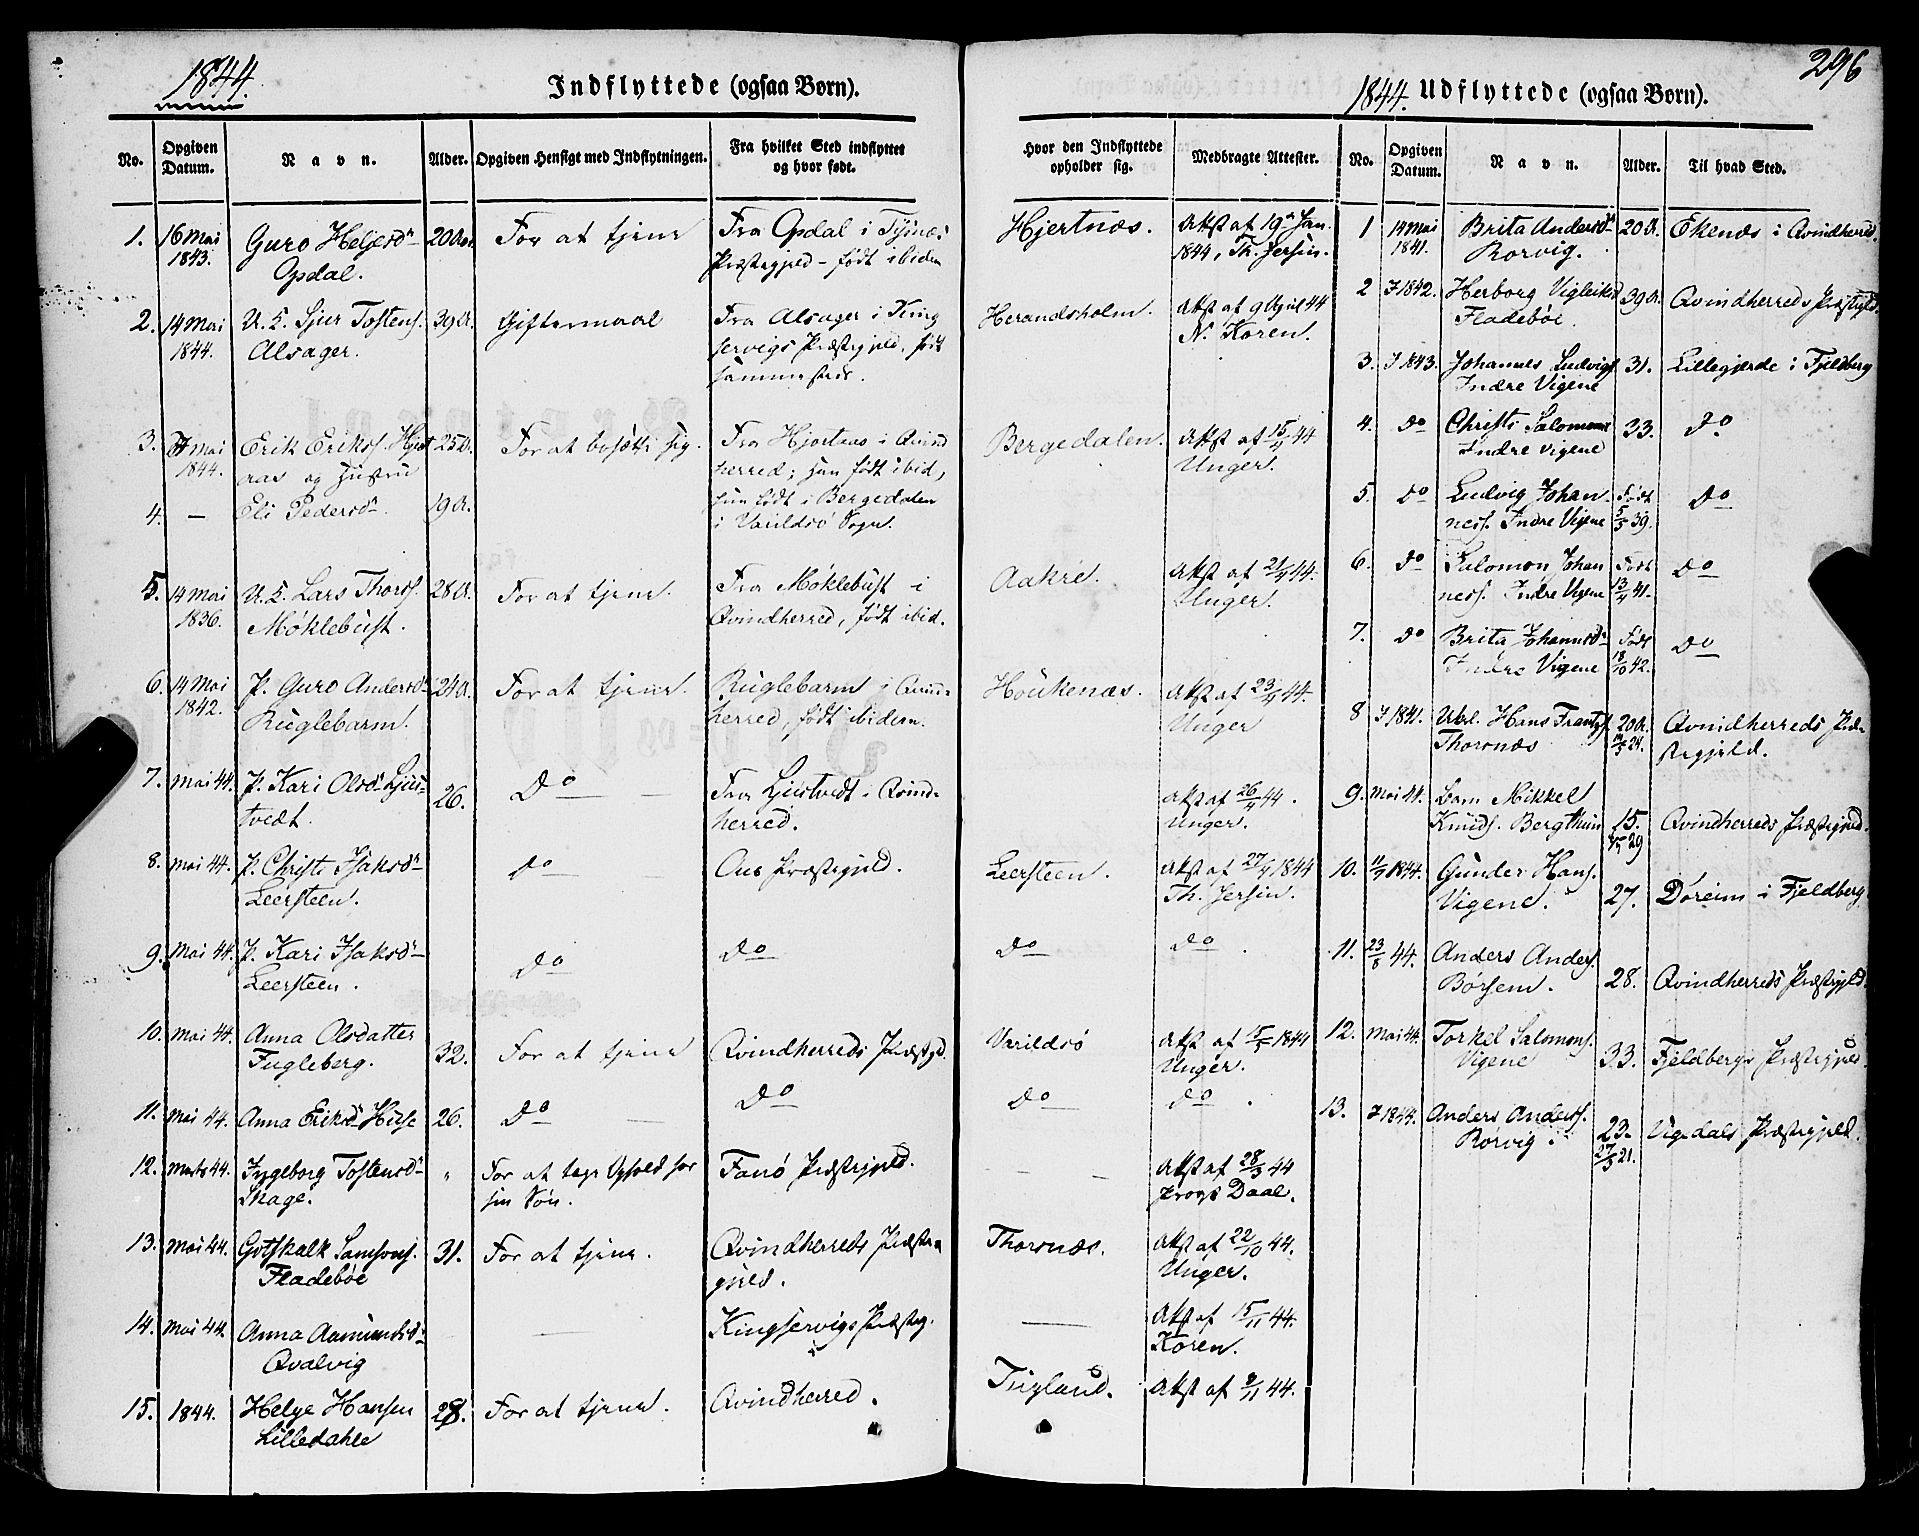 1844.
Indflyttede (ogsaa Børn).
No.
Opgiven Datum.
Navn.
Alder.
Opgiven Hensigt med Indflytningen.
Fra hvilket Sted indflyttet og hvor født.
1. 16 Mai 1843. Guro Heljesdr Opdal. 20 Ar. For at tjene Fra Opdal i Tysnes Præstegjeld - født ibidem
2. 14 Mai 1844. U. K. Sjur Tostens. Alsager. 39 A. Giftermaal Fra Alsager i Kingservigs Præstegjeld, født sammesteds.
3. Mai 1844. Erik Erikss. Hjortaas og Hustru 25 A. For at bosætte sig. Fra Hjortaas i Qvindherred; han født ibid,
4. — Eli Pedersdr 19 A. hun født i Bergedalen i Varildsø Sogn.
5. 14 Mai 1836. U. K. Lars Thorss. Møklebust. 28 A. For at tjene. Fra Møklebust i Qvindherred, født ibid.
6. 14 Mai 1842. P. Guro Andersdr Ruglebarm. 24 A. For at tjene. Ruglebarm i Qvindherred, født ibidem.
7. Mai 44. P. Kari Olsdr Ljustvedt. 26. Do — Fra Ljustvedt i Qvindherred.
8. Mai 44. P. Christi Isaksdr Leersteen. do — Aus Præstegjeld.
9. Mai 44. P. Kari Isaksdr Leersteen. Do Do
10. Mai 44. Anna Olsdatter Fugleberg. 32. For at tjene Qvindherreds Præstegd.
11. Mai 44. Anna Eriksdr Huse 26. Do — Do
12. Marts 44. Ingeborg Tostensdr Skage. " For at tage Ophold hos sin Søn. Fanø Præstegjeld.
13. Mai 44. Gotskalk Samsons. Fladebøe 31. For at tjene. Qvindherreds Præstegjeld.
14. Mai 44. Anna Aamundsdr Qvalvig — Kingservigs Præsteg.
15. 1844. Helge Hansen Lilledahle 28. For at tjene. Qvindherred.
296
1844. Udflyttede (ogsaa Børn).
Hvor den Indflyttede opholder sig.
Medbragte Attester.
No.
Opgiven Datum.
Navn.
Alder.
Til hvad Sted.
Hjertnæs. Attst af 19de Jan. 1844, Th. Jersin.
Herandsholm. Attst af 9 April 44 N. Koren.
Bergedalen. Attst af 15/4 44 Unger.
Aakre. Attst af 21/4 44. Unger.
Høukenæs. Attst af 23/4 44. Unger
Attst af 26/4 44. Unger.
Leersteen. Attst af 27/4 1844 Th. Jersin.
Do Do.
Varildsø Attst af 15/5 1844 Unger.
Do Do.
— — Attst af 28/3 44 Daae.
Thorsnæs. Attst af 22/10 44. Unger.
— Attst af 15/11 44. Koren.
Fugland. Attst af 9/11 44.
1 14 Mai 1841. Brita Andersdr Rorvig. 20 A. Ekenæs i Qvindherred.
2 I 1842. Herborg Vigleiksd Fladebøe. 39 A. Qvindherreds Præstegjeld.
3. I 1843. Johannes Ludvigs. Indre Vigene 31. Lillegjerde i Fjeldberg
4. Do Christi Salomons Indre Vigene 33. Do
5. Do Ludvig Johanness. Indre Vigene Født 5/5 39. Do
6. Do Salomon Johanness. Indre Vigene Født 13/4 41. Do
7. Do Brita Johannesdr Indre Vigene Født 18/10 42. Do
8 I 1841. Hans Frantzs. Thorsnæs 20 A. Qvindherreds Præstegjeld.
9. Mai 44. Barn Mikkel Knuds. Bergthun 15. Qvindherreds Præstegjeld.
10. 11/4 1844. Gunder Hans. Vigene. 27. Døreim i Fjeldberg
11. 23/8 44. Anders Anders. Børsem. 28. Qvindherreds Præstegjeld.
12. Mai 44. Torkel Salomons. Vigene 33. Fjeldbergs Præstegjeld
13. I 1844. Anders Anderss. Rorvig. 23. 27/3 21. Vigedals Præstegjeld.